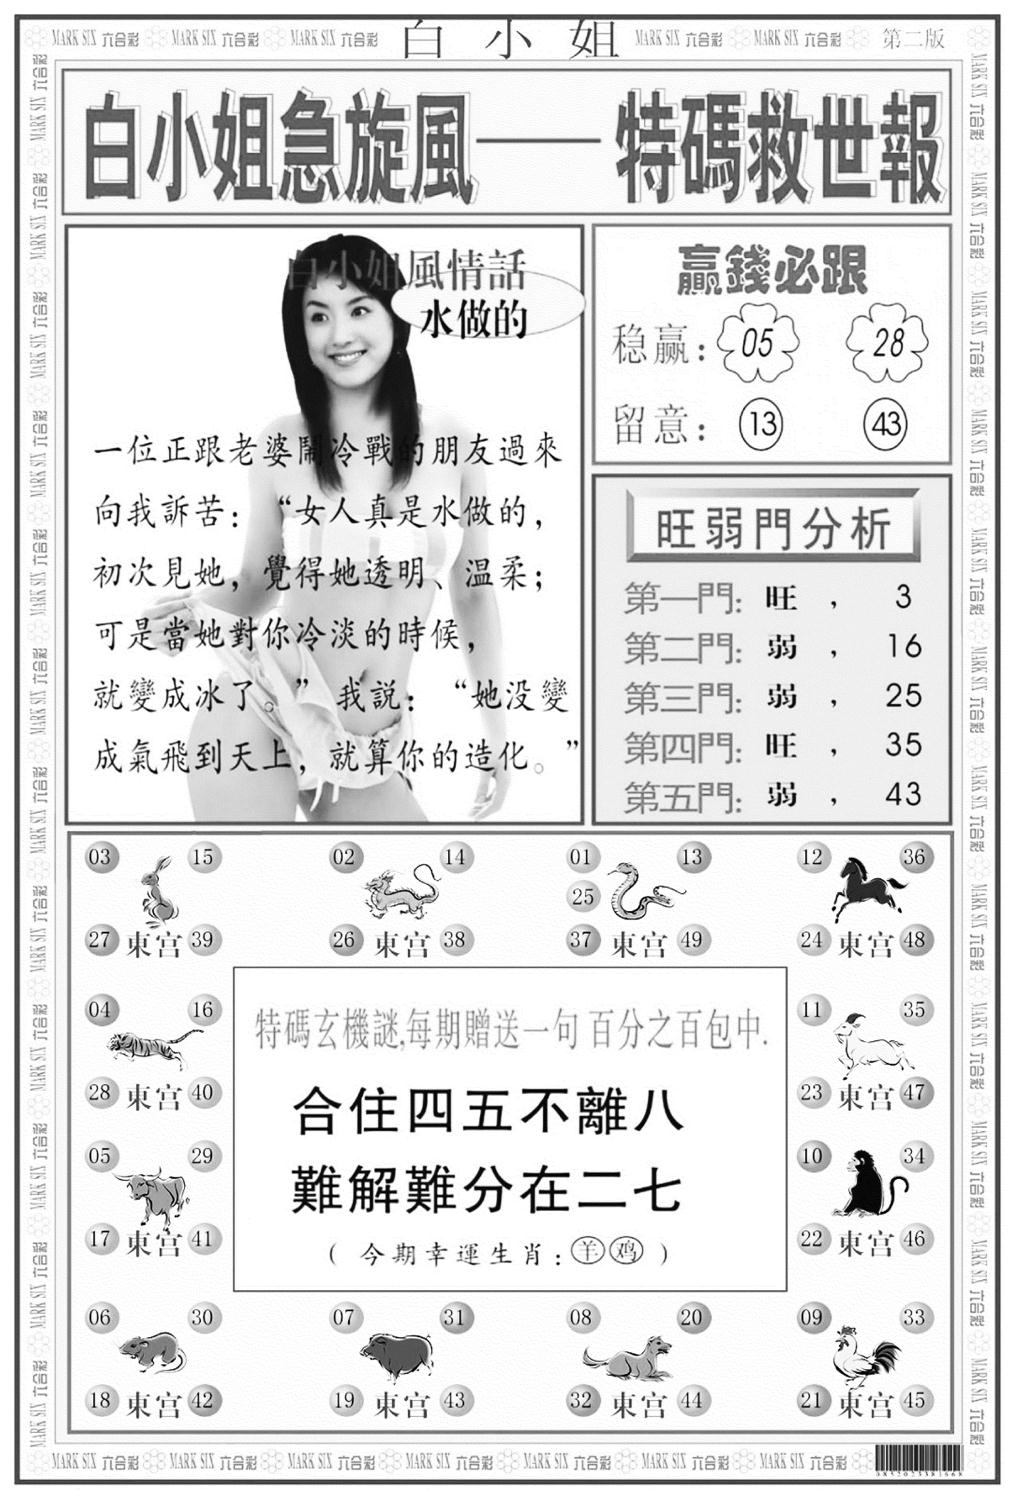 MARK SIX 六合彩 MARK SIX 六合彩 MARK SIX 六合彩 白小姐 MARK SIX 六合彩 MARK SIX 六合彩 第二版
白小姐急旋風——特碼救世報
白小姐風情話
水做的
一位正跟老婆鬧冷戰的朋友過來
向我訴苦：“女人真是水做的，
初次見她，覺得她透明、温柔；
可是當她對你冷淡的時候，
就變成冰了。” 我説：“她没變
成氣飛到天上，就算你的造化。”
贏錢必跟
稳赢：05 28
留意：13 43
旺弱門分析
第一門：旺，3
第二門：弱，16
第三門：弱，25
第四門：旺，35
第五門：弱，43
03 15 02 14 01 13 12 36
25
27 東宫 39 26 東宫 38 37 東宫 49 24 東宫 48
特碼玄機謎,每期贈送一句 百分之百包中.
合住四五不離八
難解難分在二七
(今期幸運生肖：羊 鸡)
04 16
28 東宫 40
05 29
17 東宫 41
11 35
23 東宫 47
10 34
22 東宫 46
06 30 07 31 08 20 09 33
18 東宫 42 19 東宫 43 32 東宫 44 21 東宫 45
MARK SIX 六合彩 MARK SIX 六合彩 MARK SIX 六合彩 MARK SIX 六合彩 MARK SIX 六合彩 MARK SIX 六合彩 MARK SIX 六合彩